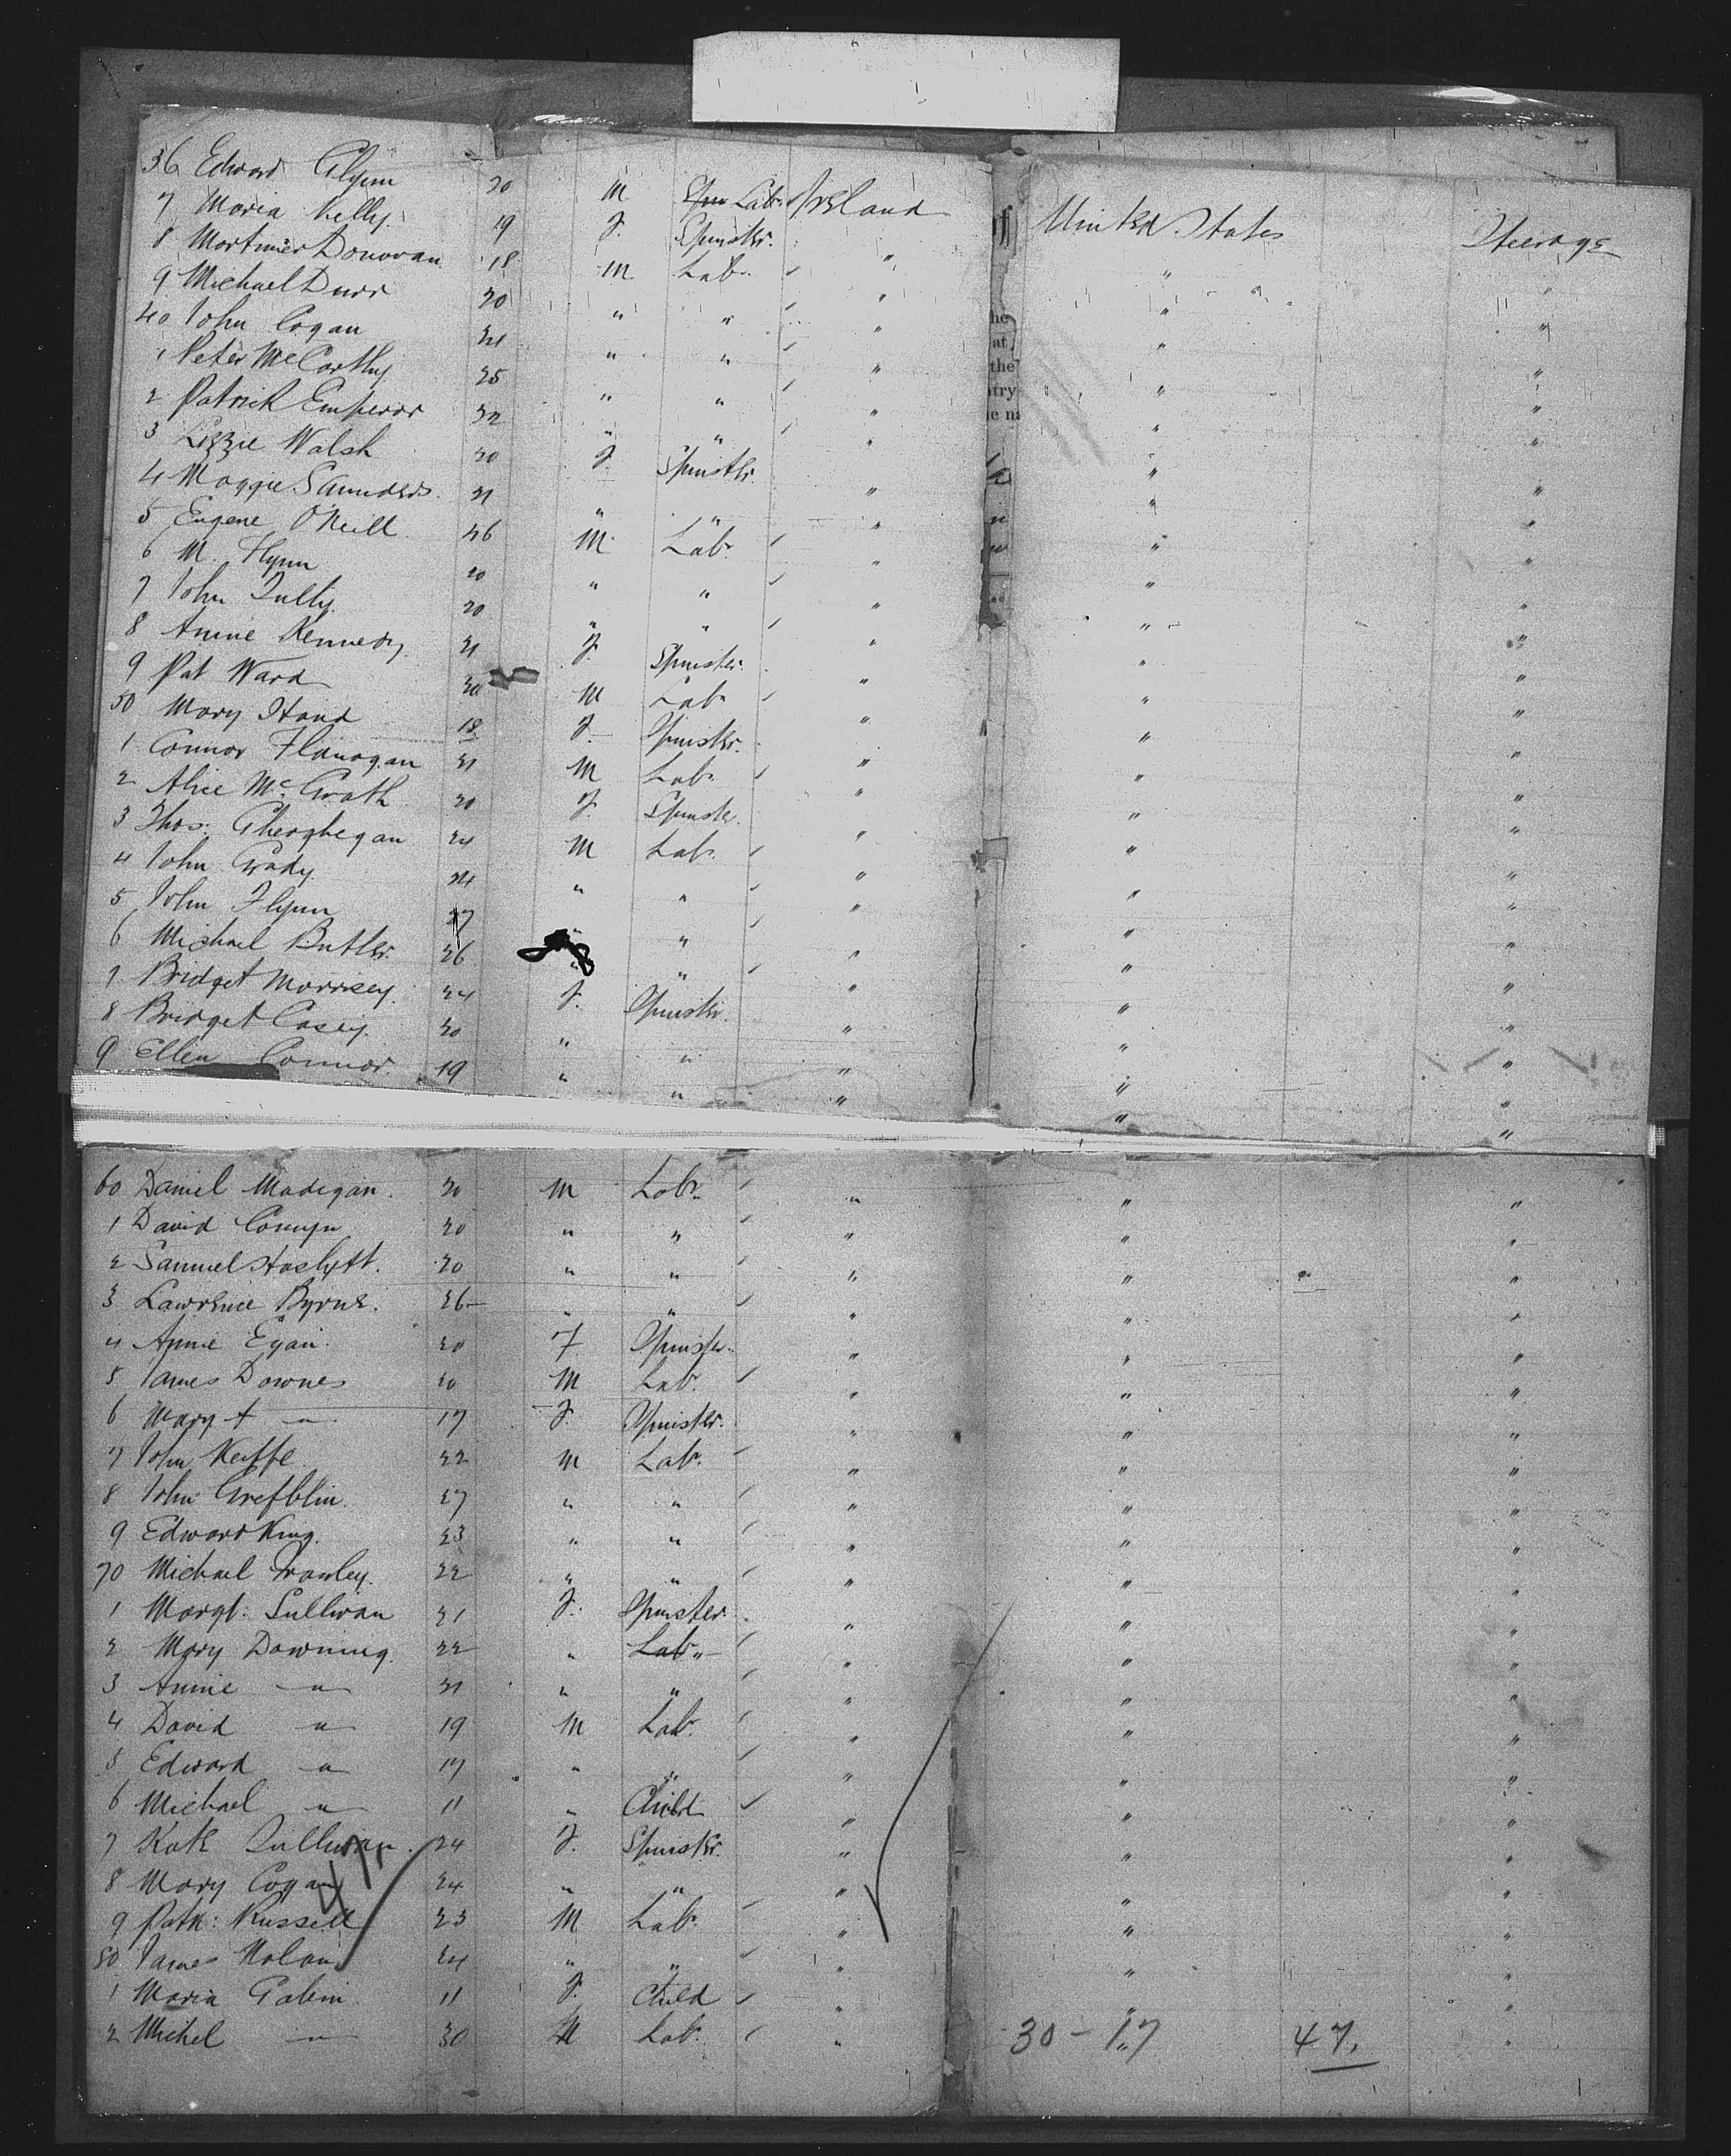 36 Edward Glynn 20 M Spin Lab. Ireland United States Steerage
7 Maria Kelly 19 F. Spinster. " " "
8 Mortimer Donovan 18 M Lab. " " "
9 Michael Durr 20 " " " " "
40 John Cogan 21 " " " " "
1 Peter McCarthy 25 " " " " "
2 Patrick Emperor 22 " " " " "
3 Lizzie Walsh 20 F. Spinster. " " "
4 Maggie Saunders. 21 " " " " "
5 Eugene O'Neill 26 M Lab. " " "
6 M. Flynn 20 " " " " "
7 John Tully 20 " " " " "
8 Annie Kennedy 21 F. Spinster. " " "
9 Pat Ward 20 M Lab. " " "
50 Mary Hand 18 F. Spinster. " " "
1 Connor Flanagan 21 M Lab. " " "
2 Alice McGrath 20 F. Spinster. " " "
3 Thos: Gheoghegan 24 M Lab. " " "
4 John Grady 24 " " " " "
5 John Flynn 27 " " " " "
6 Michael Butler. 26 " " " " "
7 Bridget Morrisey. 24 F. Spinster. " " "
8 Bridget Casey. 20 " " " " "
9 Ellen Connor. 19 " " " " "
60 Daniel Madigan. 20 M Lab. " " "
1 David 20 " " " " "
2 Samuel 20 " " " " "
3 Lawrence Byrne. 26 " " " " "
4 Annie Egan. 20 F Spinster. " " "
5 James Downes 20 M Lab. " " "
6 Mary A " 17 F. Spinster. " " "
7 John Keiffe 22 M Lab. " " "
8 John 27 " " " " "
9 Edward King. 23 " " " " "
70 Michael 22 " " " " "
1 Margt: Sullivan 21 F. Spinster. " " "
2 Mary Downing. 22 " Lab. " " " "
3 Annie " 21 " " " " "
4 David " 19 M Lab. " " "
5 Edward " 17 " " " " "
6 Michael " 11 " Child " " "
7 Kate Sullivan. 24 F. Spinster. " " "
8 Mary Cogan 24 " " " " "
9 Patk: Russell 23 M Lab. " " "
80 James Nolan 24 " " " " "
1 Maria 11 F. Child " " "
2 Michel " 30 M Lab. " " "
30 - 17 47.